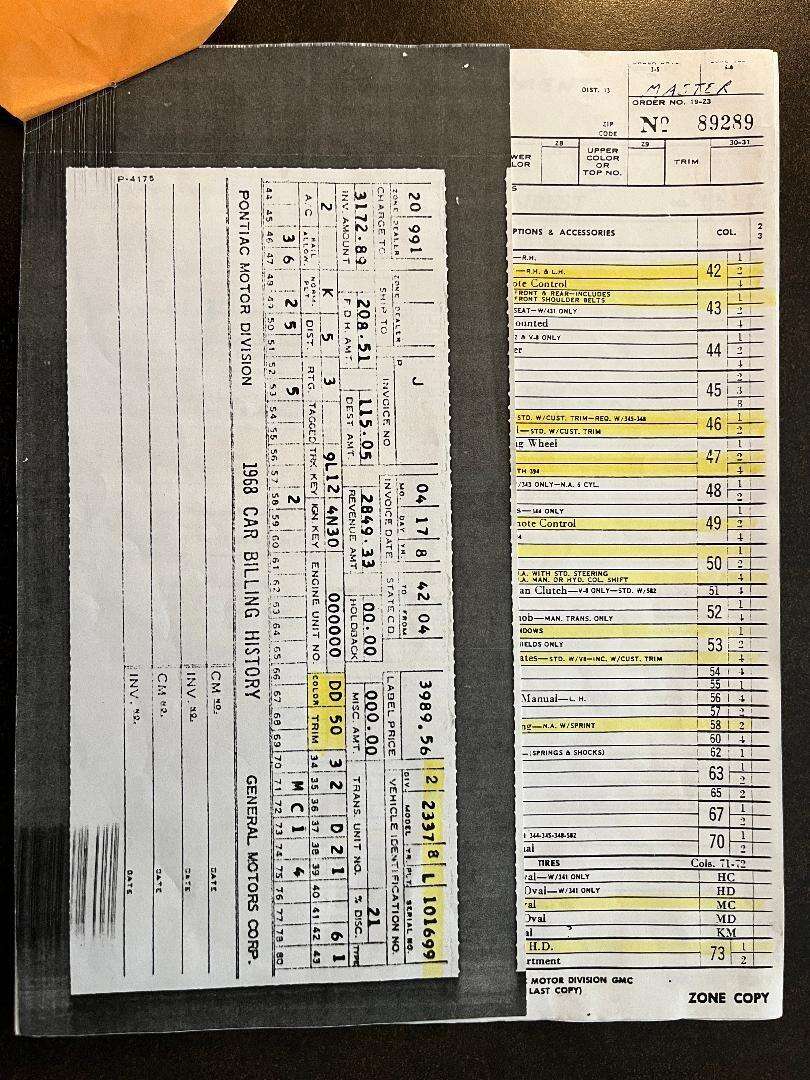 P-4175
20 991 J 04 17 8 42 04 3989.56 2 2337 8 L 101699
ZONE DEALER ZONE DEALER P MO. DAY YR. TO FROM DIV. MODEL YR. PLT. SERIAL NO.
CHARGE TO SHIP TO INVOICE NO INVOICE DATE STATE CD. LABEL PRICE VEHICLE IDENTIFICATION NO.
3172.89 208.51 115.05 2849.33 00.00 000.00 21
INV AMOUNT F.D.H. AMT. DEST AMT. REVENUE AMT. HOLDBACK MISC. AMT. TRANS. UNIT NO. % DISC. TYPE
2 K 5 3 9L12 4N30 000000 DD 50 3 2 D 2 1 6 1
A/C RAIL ALLOW. NORM. PLT. DIST. RTG. TAGGED TRK. KEY IGN. KEY ENGINE UNIT NO. COLOR TRIM 34 35 36 37 38 39 40 41 42 43
3 6 2 5 5 2 M C 1 4
44 45 46 47 48 49 50 51 52 53 54 55 56 57 58 59 60 61 62 63 64 65 66 67 68 69 70 71 72 73 74 75 76 77 78 79 80
PONTIAC MOTOR DIVISION 1968 CAR BILLING HISTORY GENERAL MOTORS CORP.
CM NO. DATE
INV. NO. DATE
CM NO. DATE
INV. NO. DATE
1-5 6-8
DIST. 13 MASTER
ORDER NO. 19-23
ZIP CODE No 89289
28 29 30-31
WER LOR UPPER COLOR OR TOP NO. TRIM
S
PTIONS & ACCESSORIES COL. 2 3
—R.H. 1
—R.H. & L.H. 42 2
ote Control 4
FRONT & REAR—INCLUDES
FRONT SHOULDER BELTS 43 1
SEAT—W/431 ONLY 2
ounted 4
2 & V-8 ONLY 1
er 44 2
4
2
45 3
8
STD. W/CUST. TRIM—REQ. W/345-348 46 1
—STD. W/CUST. TRIM 2
g Wheel 1
47 2
TH 394 4
/343 ONLY—N.A. 6 CYL. 48 1
2
S—344 ONLY 1
mote Control 49 2
4
1
50 2
.A. WITH STD. STEERING
.A. MAN. OR HYD. COL. SHIFT 4
an Clutch—V-8 ONLY—STD. W/582 51 4
52 1
ob—MAN. TRANS. ONLY 4
DOWS 1
IELDS ONLY 53 2
ates—STD. W/V8—INC. W/CUST. TRIM 4
54 4
55 1
Manual—L.H. 56 4
57 2
g—N.A. W/SPRINT 58 2
60 4
—(SPRINGS & SHOCKS) 62 1
63 1
2
65 2
67 1
2
344-345-348-582 70 1
al 2
TIRES Cols. 71-72
al—W/341 ONLY HC
Oval—W/341 ONLY HD
al MC
Oval MD
al KM
H.D. 73 1
rtment 2
MOTOR DIVISION GMC
LAST COPY)
ZONE COPY